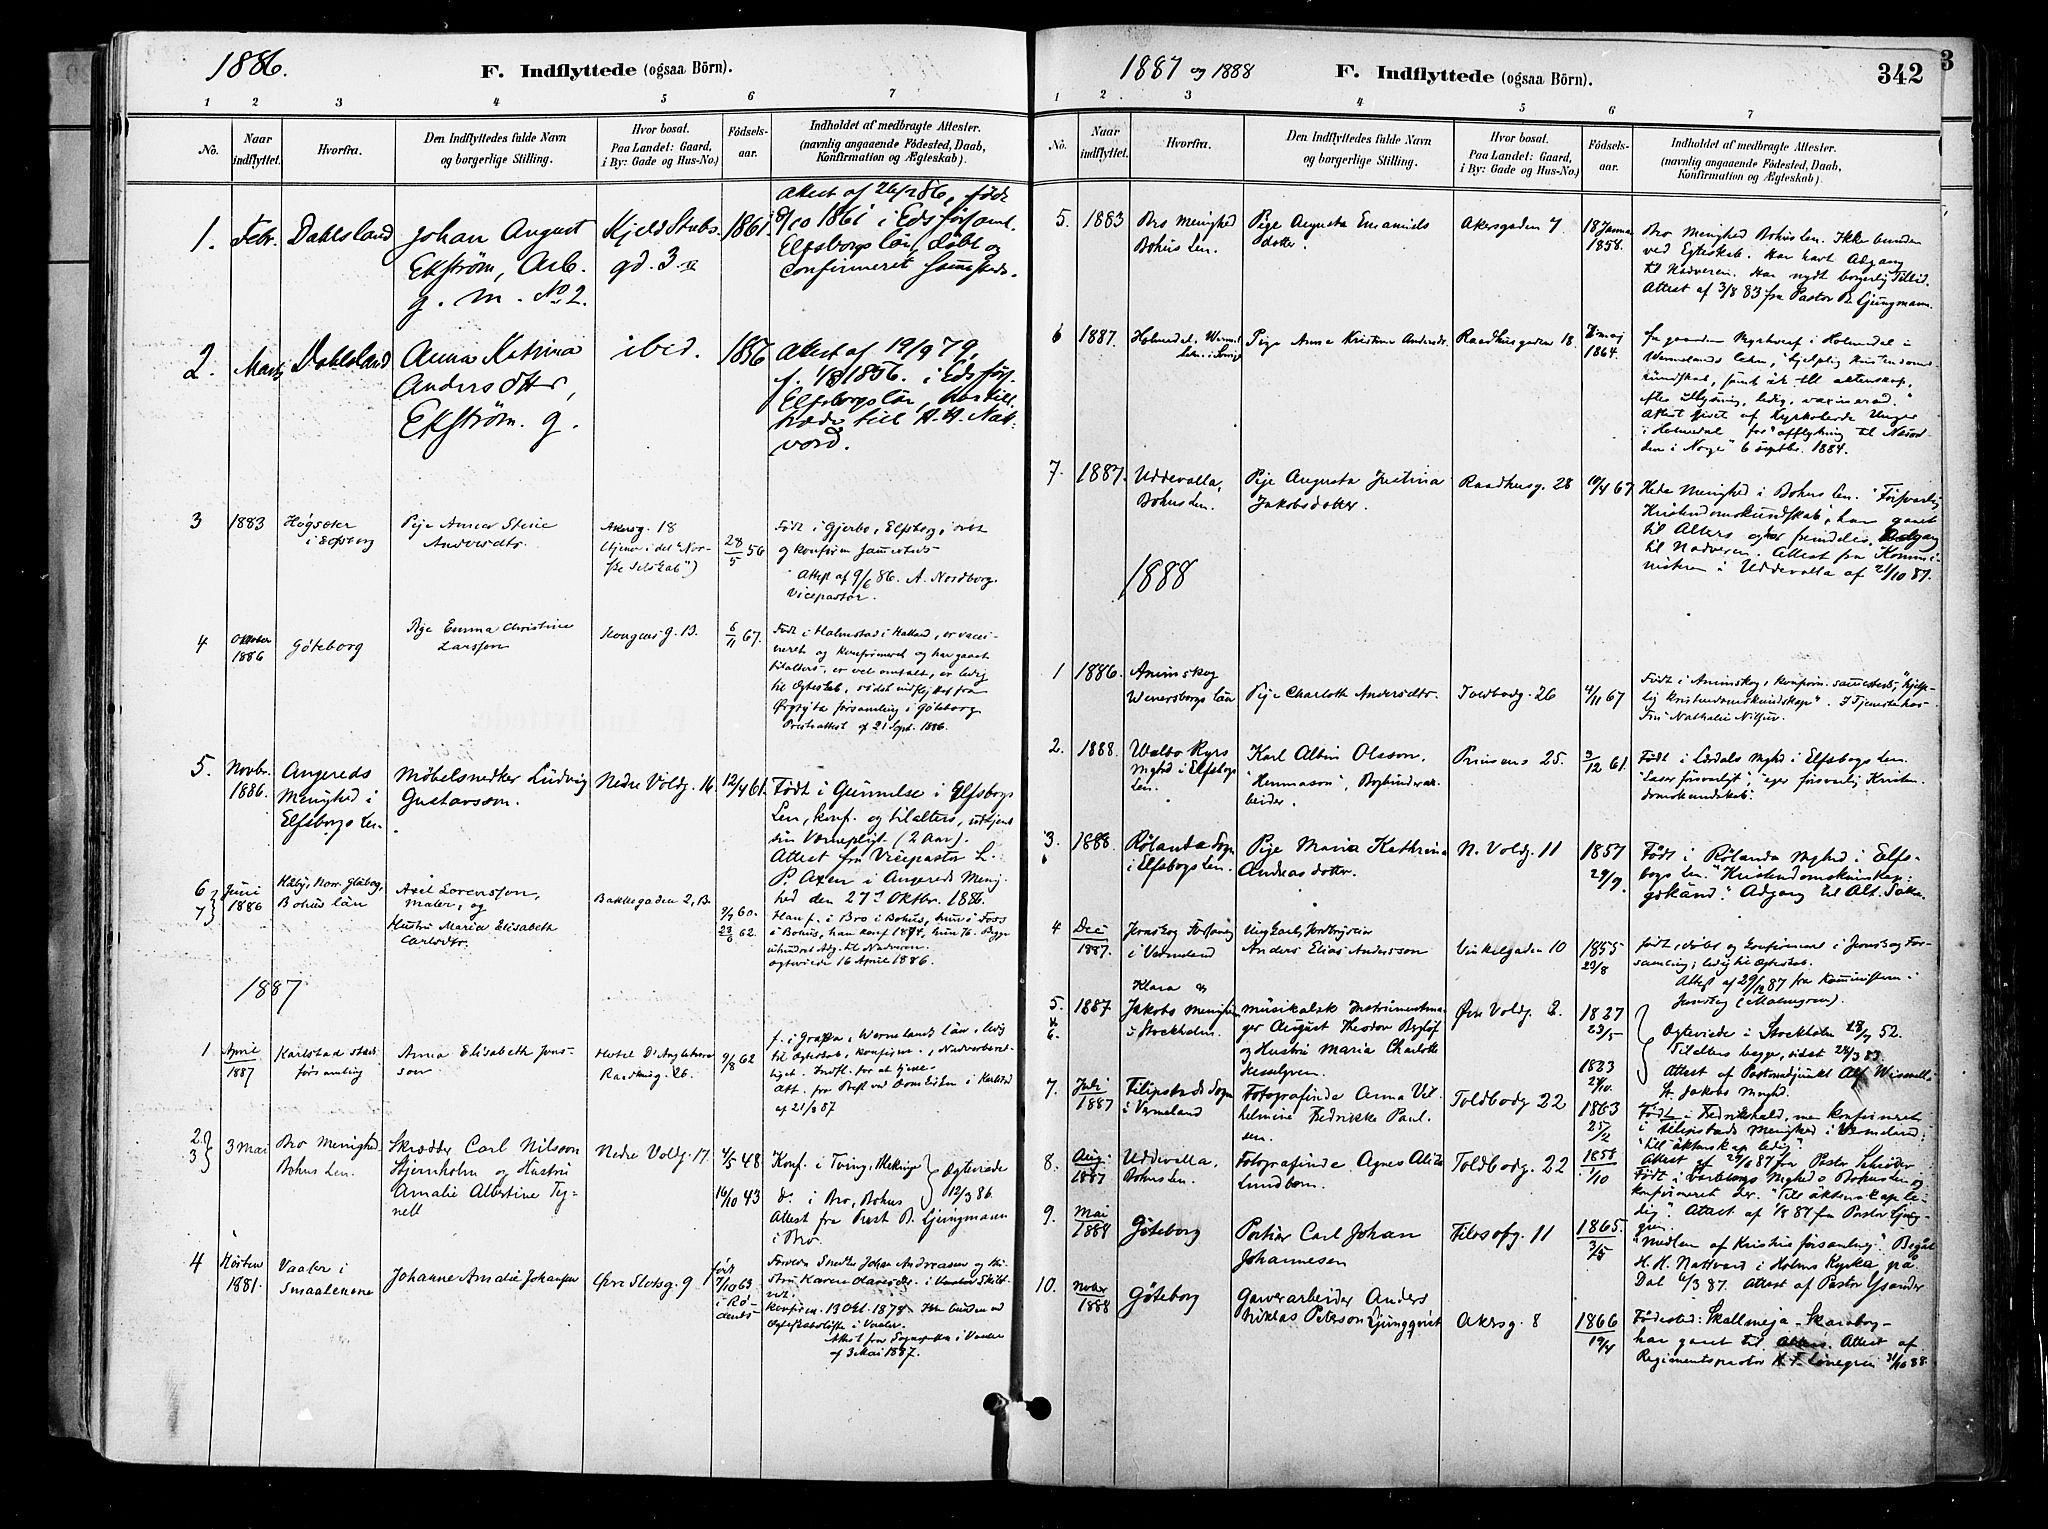 1886.
F. Indflyttede (ogsaa Börn).
1 2 3 4 5 6 7
No.
Naar indflyttet.
Hvorfra.
Den Indflyttedes fulde Navn
og borgerlige Stilling.
Hvor bosat.
Paa Landet: Gaard,
i By: Gade og Hus-No.)
Födsels-
aar.
Indholdet af medbragte Attester.
(navnlig angaaende Födested, Daab,
Konfirmation og Ægteskab).
1. Febr. Dahlsland Johan August Kjeld Stubs- 1861
Ekström, Arb. gd. 3
g. m. No 2.
Attest af 26/2 86, föd
9/10 1861 i Eds förs aml.
Elfsborgs län, döbt og
confirmeret sammesteds.
2. Marts Dahlsland Anna Katrina ibid. 1856
Andersdotter,
Ekström. g.
Attest af 19/9 79,
Elfsborgs län,
till H. H. Natt-
vord.
3 1883 Högsäter
i Elfsborg
Pige Anna Stine
Andersdtr.
Akersg. 18
(tjener i det "Nor-
ske Selskab")
28/5 56
Födt i Gjerbo, Elfsborg,
og konfirm sammesteds-
Attest af 9/6 86. A. Nordborg
Vicepastor.
4 Oktober
1886
Göteborg
Pige Emma Christine
Larsson
Kongens g. 13.
6/11 67.
Födt i Halmstad i Halland, er vacci-
neret og konfirmeret og har gaaet
tilalters, er vel omtalt, er ledig
til Ægteskab, sidst indflyttet fra
Örgryte församling i Göteborg
Prestattest af 21 Sept. 1886.
5. Novbr.
1886.
Angereds
Menighed i
Elfsborgs Len.
Möbelsnedker Ludvig
Gustavsson.
Nedre Voldg. 16
12/4 61.
Födt i Gunnilse i Elfsborgs
Len, konf. og tilalters, udtjent
sin Værnepligt (2 Aar).
Attest fra Vicepastor L.
P. Axen i Angereds Menig-
hed den 27de Oktbr. 1886.
6
7
Juni
1886
Håby, Norr.
Bohus län
Axel Lorensson,
maler, og
Hustru Maria Elisabeth
Carlsdtr.
Bakkegaden 2, B.
9/9 60.
23/6 62.
Han f. i Bro i Bohus, hun i Foss
i Bohus, han konf 1874, hun 76. Begge
uhindret Adg. til Nadveren.
ægteviede 16 April 1886.
1887
1 April
1887
Karlstad stads
församling
Anna Elisabeth Jons-
son
Hotel D'Angleterre
Raadhusg. 26.
9/8 62
f. i Grafva, Wermlands län, ledig
til Ægteskab, konfirm., Nadverberet-
tiget. Indfl. for at tjene.
Att. fra Præst ved Domkirken i Karlstad
af 21/3 87
2.
3
3 Mai
Bro Menighed
Bohus Len.
Skrædder Carl Nilsson
Stjernholm og Hustru
Amalie Albertine Teg-
nell
Nedre Voldg. 17.
4/5 48
16/10 43
Konf. i Tving, Blekinge
do. i Bro, Bohus
Ægteviede
12/3 86.
Attest fra Prest B. Ljungmann
i Bro.
4 Hösten
1881.
Vaaler i
Smaalenene
Johanne Amalie Johansen
Övre Slotsg. 9
födt
7/10 63
i Rö-
denes
Forældre Snedker Johan Andreassen og Hu-
stru Karen
konfirm. 13 Okt. 1878.
Ægteskabslöfte i Vaaler.
Attest fra Sognepræsten i Vaaler
af 3 Mai 1887.
1887 og 1888
F. Indflyttede (ogsaa Börn).
342
3
1 2 3 4 5 6 7
No.
Naar indflyttet.
Hvorfra.
Den Indflyttedes fulde Navn
og borgerlige Stilling.
Hvor bosat.
Paa Landet: Gaard,
i By: Gade og Hus-No.)
Födsels-
aar.
Indholdet af medbragte Attester.
(navnlig angaaende Födested, Daab,
Konfirmation og Ægteskab).
5. 1883 Bro Menighed
Bohus Len.
Pige Augusta Emanuels
dotter.
Akersgaden 7.
18 Januar
1858.
Bro Menighed Bohus Len. Ikke bunden
ved Egteskab. Har havt Adgang
til Nadveren. Har nydt borgerlig Tillid.
Attest af 3/8 83 fra Pastor B. Ljungmann.
6 1887. Holmedal, Werml.
Len. i Sverige
Pige Anna Kristina Andersdr.
Raadhusgaden 18.
mai
1864.
Wermlands leen, "hjelplig kristendoms-
kundskab, samt är till äktenskap,
efter utlysning, ledig, vaxinerad."
Attest givet af Kyrkoherde Unger
i Holmedal for "afflytning til Nesod-
den i Norge" 6 septbr. 1884.
7. 1887. Uddevalla,
Bohus Len.
Pige Augusta Justina
Jakobsdotter.
Raadhusg. 28
10/4 67
Hede Menighed i Bohus Len. "Försvarlig
Kristendomskundskab", har gaaet
til Alters og har fremdeles Adgang
til Nadveren. Attest fra Kommi-
nistren i Uddevalla af 21/10 87.
1888
1 1886. Animskog
Wenersborgs län
Pige Charlotte Andersdtr.
Toldbodg. 26
4/11 67
Födt i Animskog, konfirm. sammesteds, "hjelp-
lig kristendomskundskap". I Tjeneste hos
Fru Nathalie Nilsen.
2. 1888. Walbo Ryrs
Mghd i Elfsborgs
Len.
Karl Albin Olsson,
"Hermason", Bogbinderar-
beider.
Prinsens 25.
3/12 61.
Födt i Lerdals Mghd i Elfsborgs Len.
"Läser försvarligt", eger försvarlig Kristen-
domskundskab.
3. 1888. Rölanda Sogn
i Elfsborgs Len.
Pige Maria Kathrina
Andreasdotter.
N. Voldg. 11
1857
29/9.
Födt i Rölanda Mghd i Elfs-
borgs Len. "Kristendomskunskap:
godkänd." Adgang til Alt. Sakr.
4 Dec
1887.
Jernskog Forsamg
i Vermland
Anders Elias Andersson
Vinkelgaden 10
1855
23/8
födt, döbt og konfirmeret i Jernskog For-
samling; ledig til Ægteskab.
Attest af 29/12 87 fra Komministeren i
Jernskog (Malmgren).
5.
6.
1887
Klara og
Jakobs Menighed
i Stockholm.
musikalsk Instrumentma-
ger August Theodor Byglöf
og Hustru Maria Charlotte
Kesselgren.
Övre Voldg. 2.
1827
23/5
1833
21/10.
Ægteviede i Stockholm 28/7 52.
Til alters begge, sidst 24/3 83.
Attest af Pastorsadjunkt Alf Wiswell
St. Jakobs Mnghd.
7. Juli
1887
Filipstads Sogn
i Vermland
Fotografinde Anna Vil-
helmine Fredrikke Paul-
sen.
Toldbodg 22
1863
25/2
Födt i Fredrikshald, men konfirmeret
i Filipstads Menighed i Vermland;
"till äktenskap ledig".
Attest af 29/6 87 fra Pastor Schröder
8. Aug.
1887
Uddevalla.
Bohus Len.
Fotografinde Agnes Alida
Lundbom.
Toldbodg. 22
1858
1/10
Födt i Varbergs Mghd o Bohus Len og
konfirmeret der. "Till äktenskap le-
dig". Attest af 1/8 87 fra Pastor Ljung-
gren.
9. Mai
1888
Göteborg
Portier Carl Johan
Johannesen
Filosofg. 11
1865.
3/5
"Medlem af Kristine församling". Begått
H. H. Nattvard i Holms Kyrka på
Dal 6/3 87. Attest af Pastor Ysander
10. Novbr
1888
Göteborg
Garverarbeider Anders
Niklas Peterson Ljungqvist
Akersg. 8
1866
19/4
Födested: Skallmeja - Skaraborg -
har gaaet til Alters. Attest af
Regimentspastor K. F. Lönegren 31/10 88.